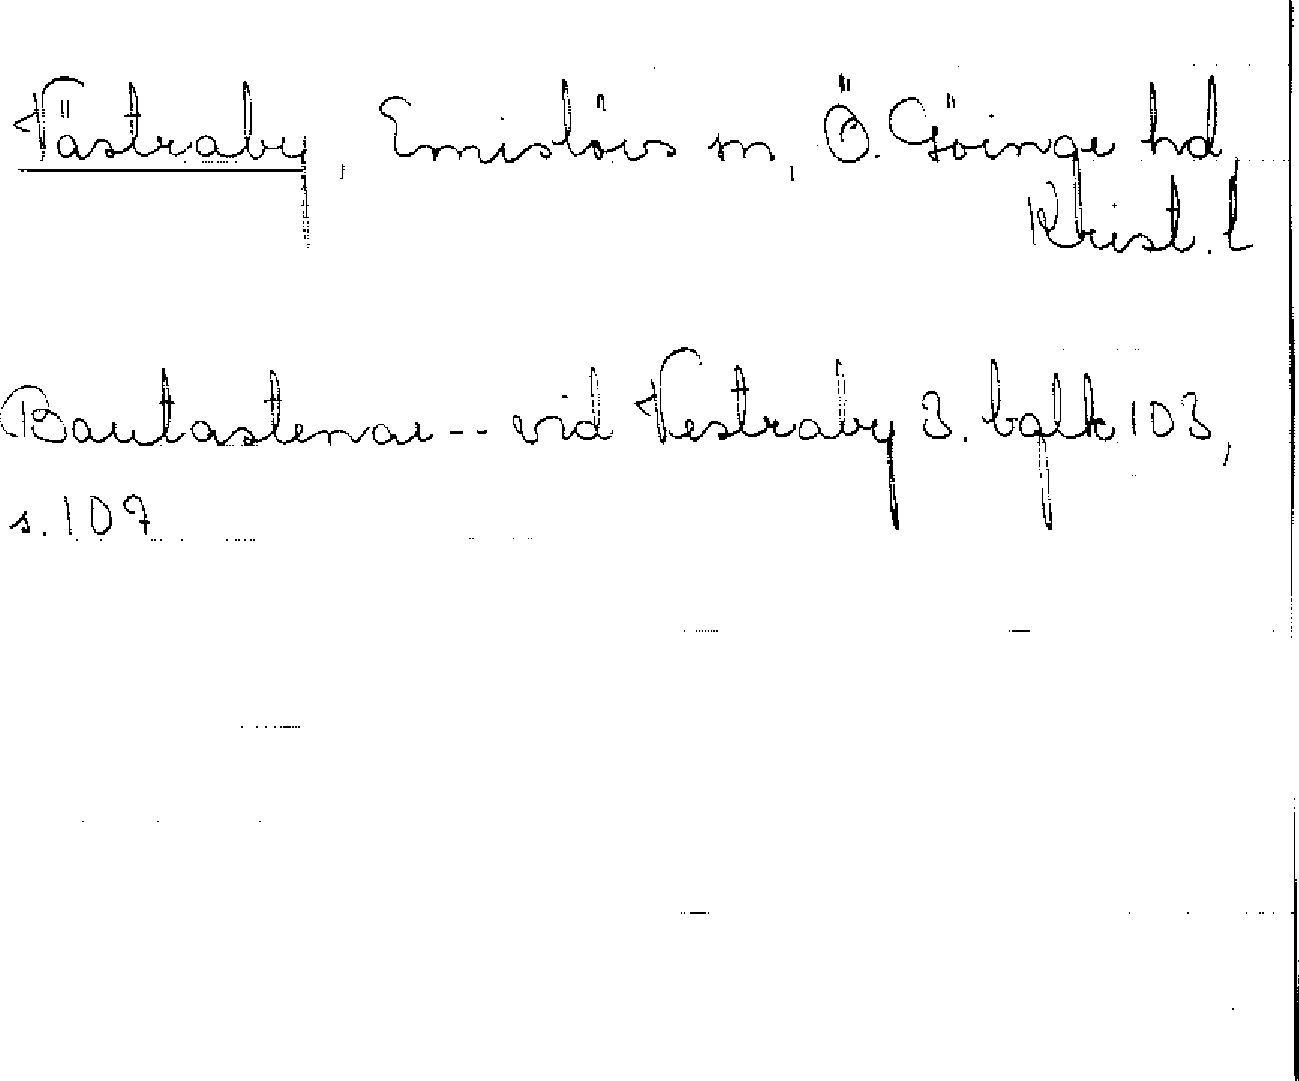 Västraby, Emislövs sn, Ö. Göinge hd
Krist. l
Bautastenar -- vid Vestraby 3. bglk 103,
s. 107